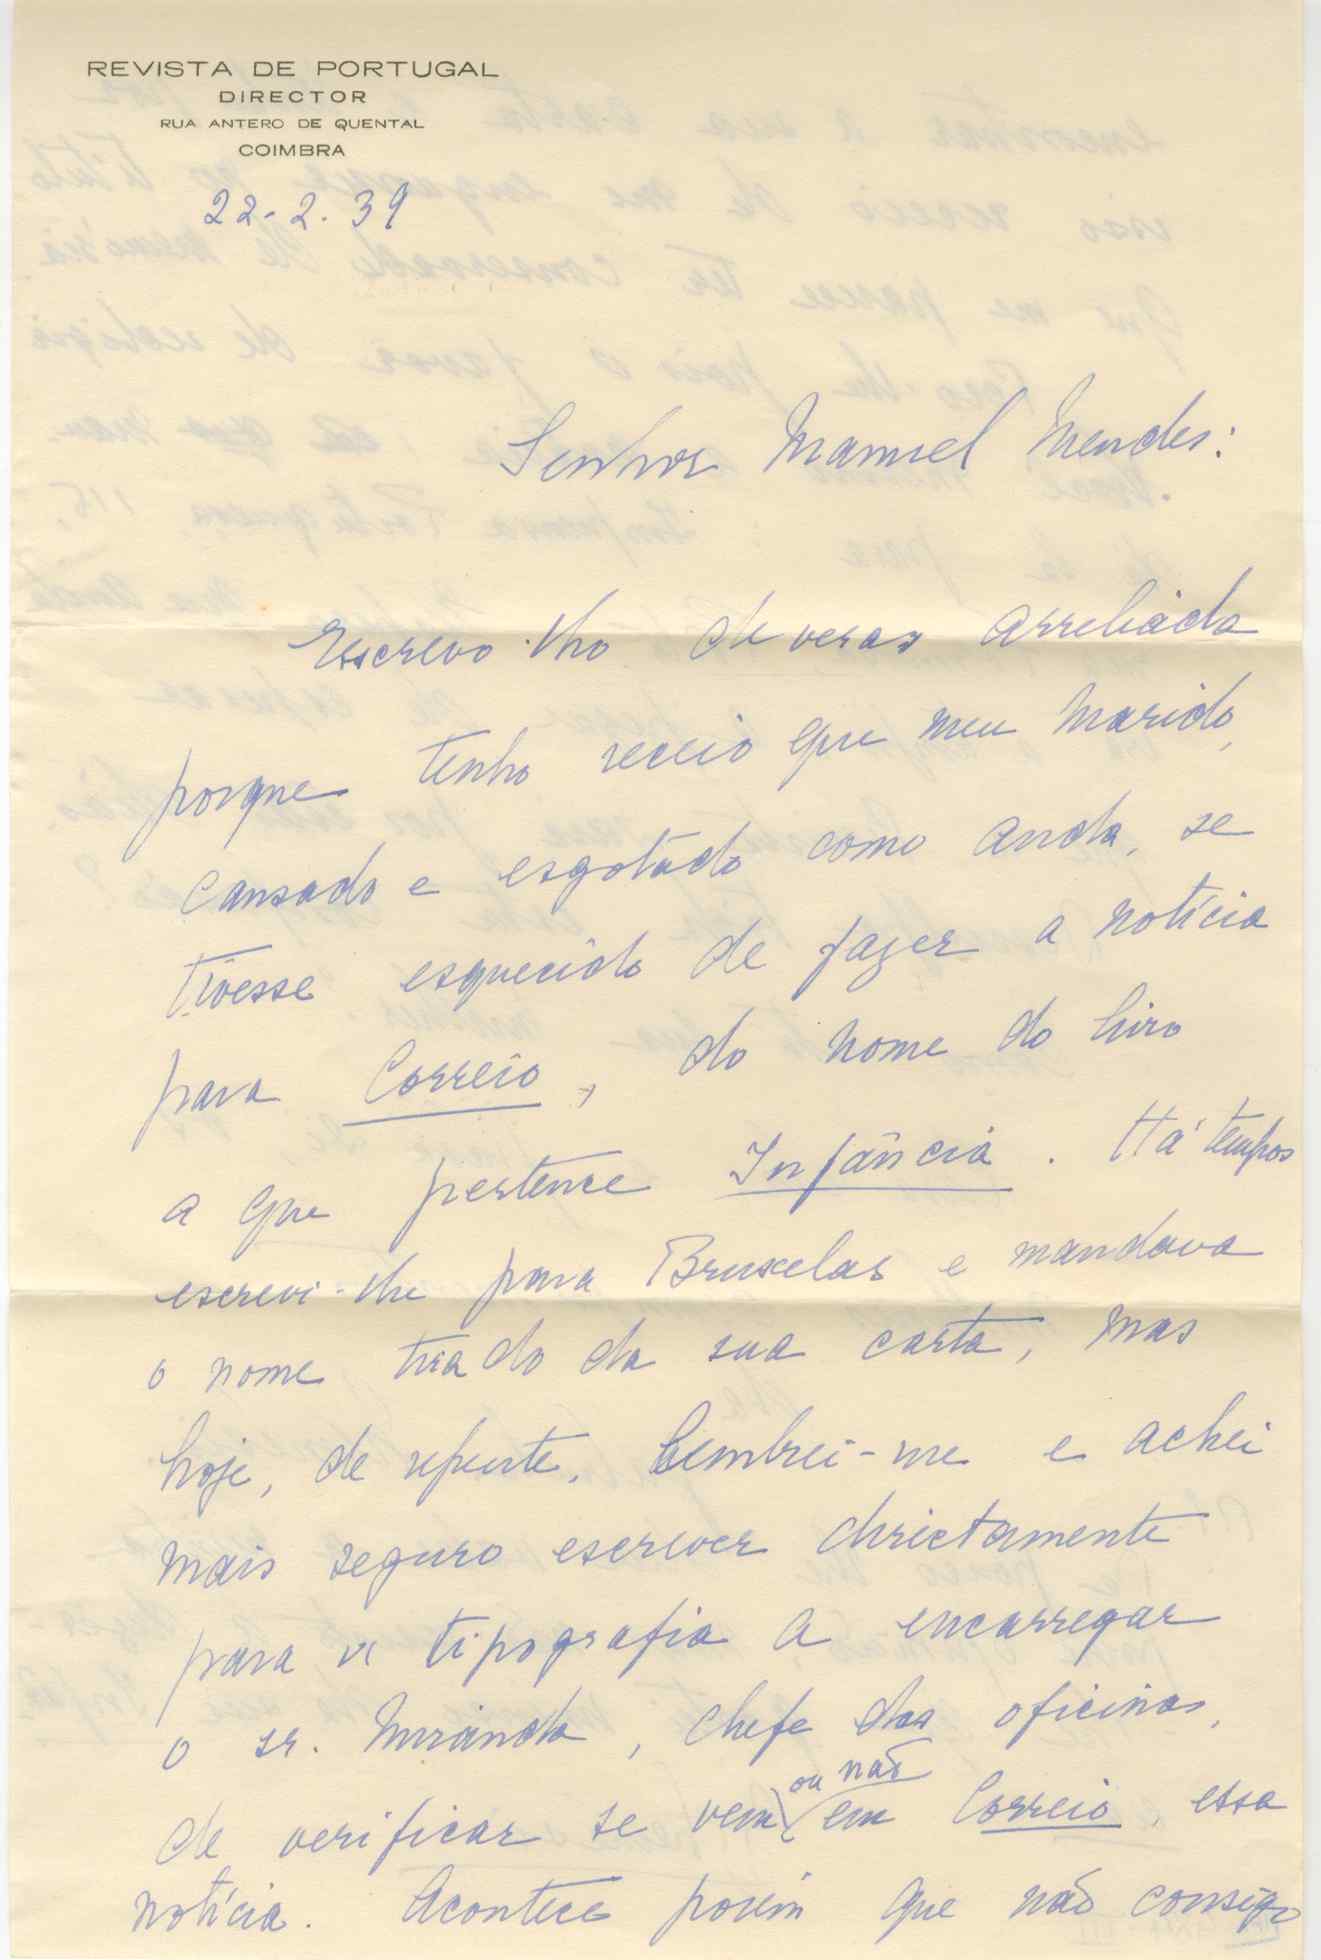 REVISTA DE PORTUGAL
DIRECTOR
RUA ANTERO DE QUENTAL
COIMBRA
22-2.39
Senhor Manuel Mendes:
Escrevo-lho deveras arreliada
porque tenho receio que meu Marido,
cansado e esgotado como anda, se
tivesse esquecido de fazer a notícia
para Correio, do nome do livro
a que pertence Infância. Há tempos
escrevi-lhe para Bruxelas e mandava
o nome tirado da sua carta, mas
hoje, de repente, lembrei-me e achei
mais seguro escrever directamente
para a tipografia a encarregar
o sr. Miranda, chefe das oficinas,
de verificar se vem ou não em Correio, essa
notícia. Acontece porém que não consigo